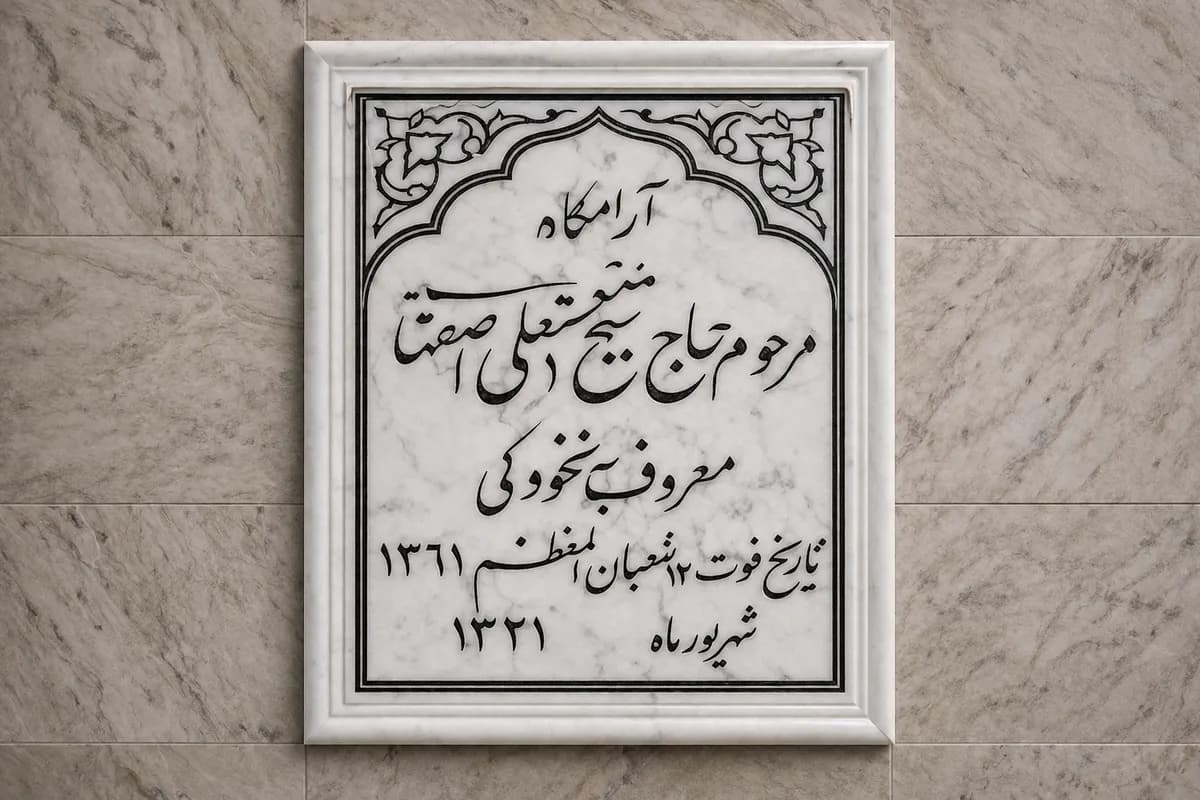 آرامگاه
مرحوم حاج شیخ حسنعلی اصفهانی
معروف به نخودکی
تاریخ فوت ۱۲ شعبان المعظم ۱۳۶۱
شهریور ماه ۱۳۲۱